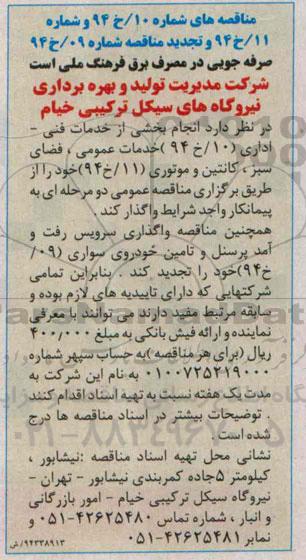 مناقصه های شماره ۱۰/خ ۹۴ و شماره
۱۱/خ۹۴ و تجدید مناقصه شماره ۰۹/خ۹۴
صرفه جویی در مصرف برق فرهنگ ملی است
شرکت مدیریت تولید و بهره برداری
نیروگاه های سیکل ترکیبی خیام
در نظر دارد انجام بخشی از خدمات فنی -
اداری (۱۰/خ ۹۴ )خدمات عمومی ، فضای
سبز ، کانتین و موتوری (۱۱/خ۹۴)خود را از
طریق برگزاری مناقصه عمومی دو مرحله ای به
پیمانکار واجد شرایط واگذار کند .
همچنین مناقصه واگذاری سرویس رفت و
آمد پرسنل و تامین خودروی سواری (۰۹/
خ۹۴)خود را تجدید کند . بنابراین تمامی
شرکتهایی که دارای تاییدیه های لازم بوده و
سابقه مرتبط مفید دارند می توانند با معرفی
نماینده و ارائه فیش بانکی به مبلغ ۴۰۰/۰۰۰
ریال (برای هر مناقصه)به حساب سپهر شماره
۰۱۰۰۷۲۵۲۱۹۰۰۰ به نام این شرکت به
مدت یک هفته نسبت به تهیه اسناد اقدام کنند
. توضیحات بیشتر در اسناد مناقصه ها درج
شده است .
نشانی محل تهیه اسناد مناقصه :نیشابور ،
کیلومتر ۵جاده کمربندی نیشابور - تهران -
نیروگاه سیکل ترکیبی خیام - امور بازرگانی
و انبار ، شماره تماس ۴۲۶۲۵۴۸۰-۰۵۱ و
نمابر ۴۲۶۲۵۴۸۱-۰۵۱
۹۴۳۳۸۹۱۳/ش
۰۲۱-۸۸۳۴۹۶۷۰-۵